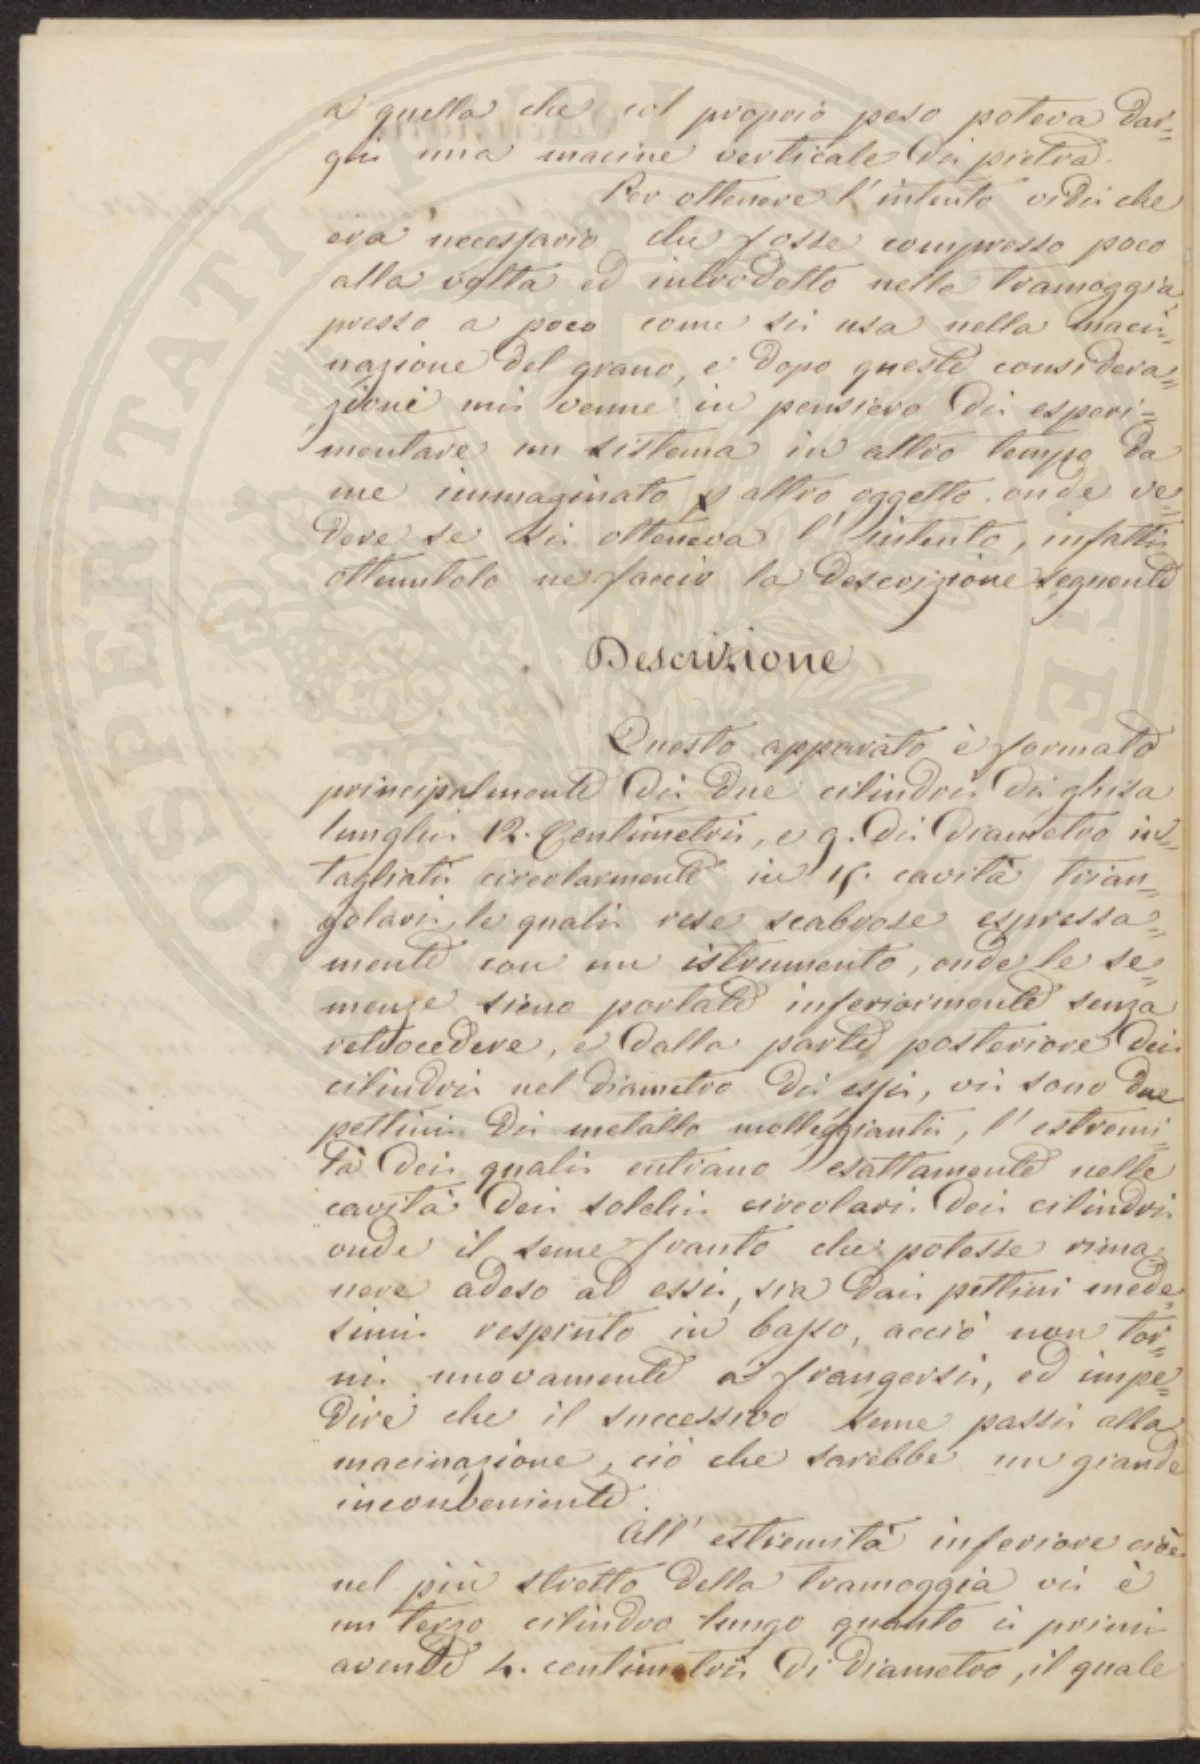 a quella che col proprio peso poteva dar=
gli una macine verticale di pietra.
Per ottenere l'intento vidi che
era necessario che fosse compresso poco
alla volta ed introdotto nella tramoggia,
presso a poco come si usa nella maci=
nazione del grano, e dopo queste considera=
zioni mi venne in pensiero di esperi=
mentare un sistema in altro tempo da
me immaginato p altro oggetto onde ve=
dere se si otteneva l'intento, infatti
ottenutolo ne faccio la descrizione seguente
Descrizione
Questo apparato è formato
principalmente di due cilindri di ghisa
lunghi 12. Centimetri, e 9. di diametro in=
tagliati circolarmente in 15. cavità trian=
golari, le quali rese scabrose espressa=
mente con un istrumento, onde le se=
menze sieno portate inferiormente senza
retrocedere, e dalla parte posteriore dei
cilindri nel diametro di essi, vi sono due
pettini di metallo molleggianti, l'estremi=
tà dei quali entrano esattamente nelle
cavità dei solchi circolari dei cilindri
onde il seme franto che potesse rima=
nere adeso ad essi, sia dai pettini mede=
simi respinto in basso, acciò non tor=
ni nuovamente a frangersi, ed impe=
dire che il successivo seme passi alla
macinazione, ciò che sarebbe un grande
inconveniente.
All'estremità inferiore cioè
nel più stretto della tramoggia vi è
un terzo cilindro lungo quanto i primi
avente 4. centimetri di diametro, il quale
PROSPERITATI PUBLICAE